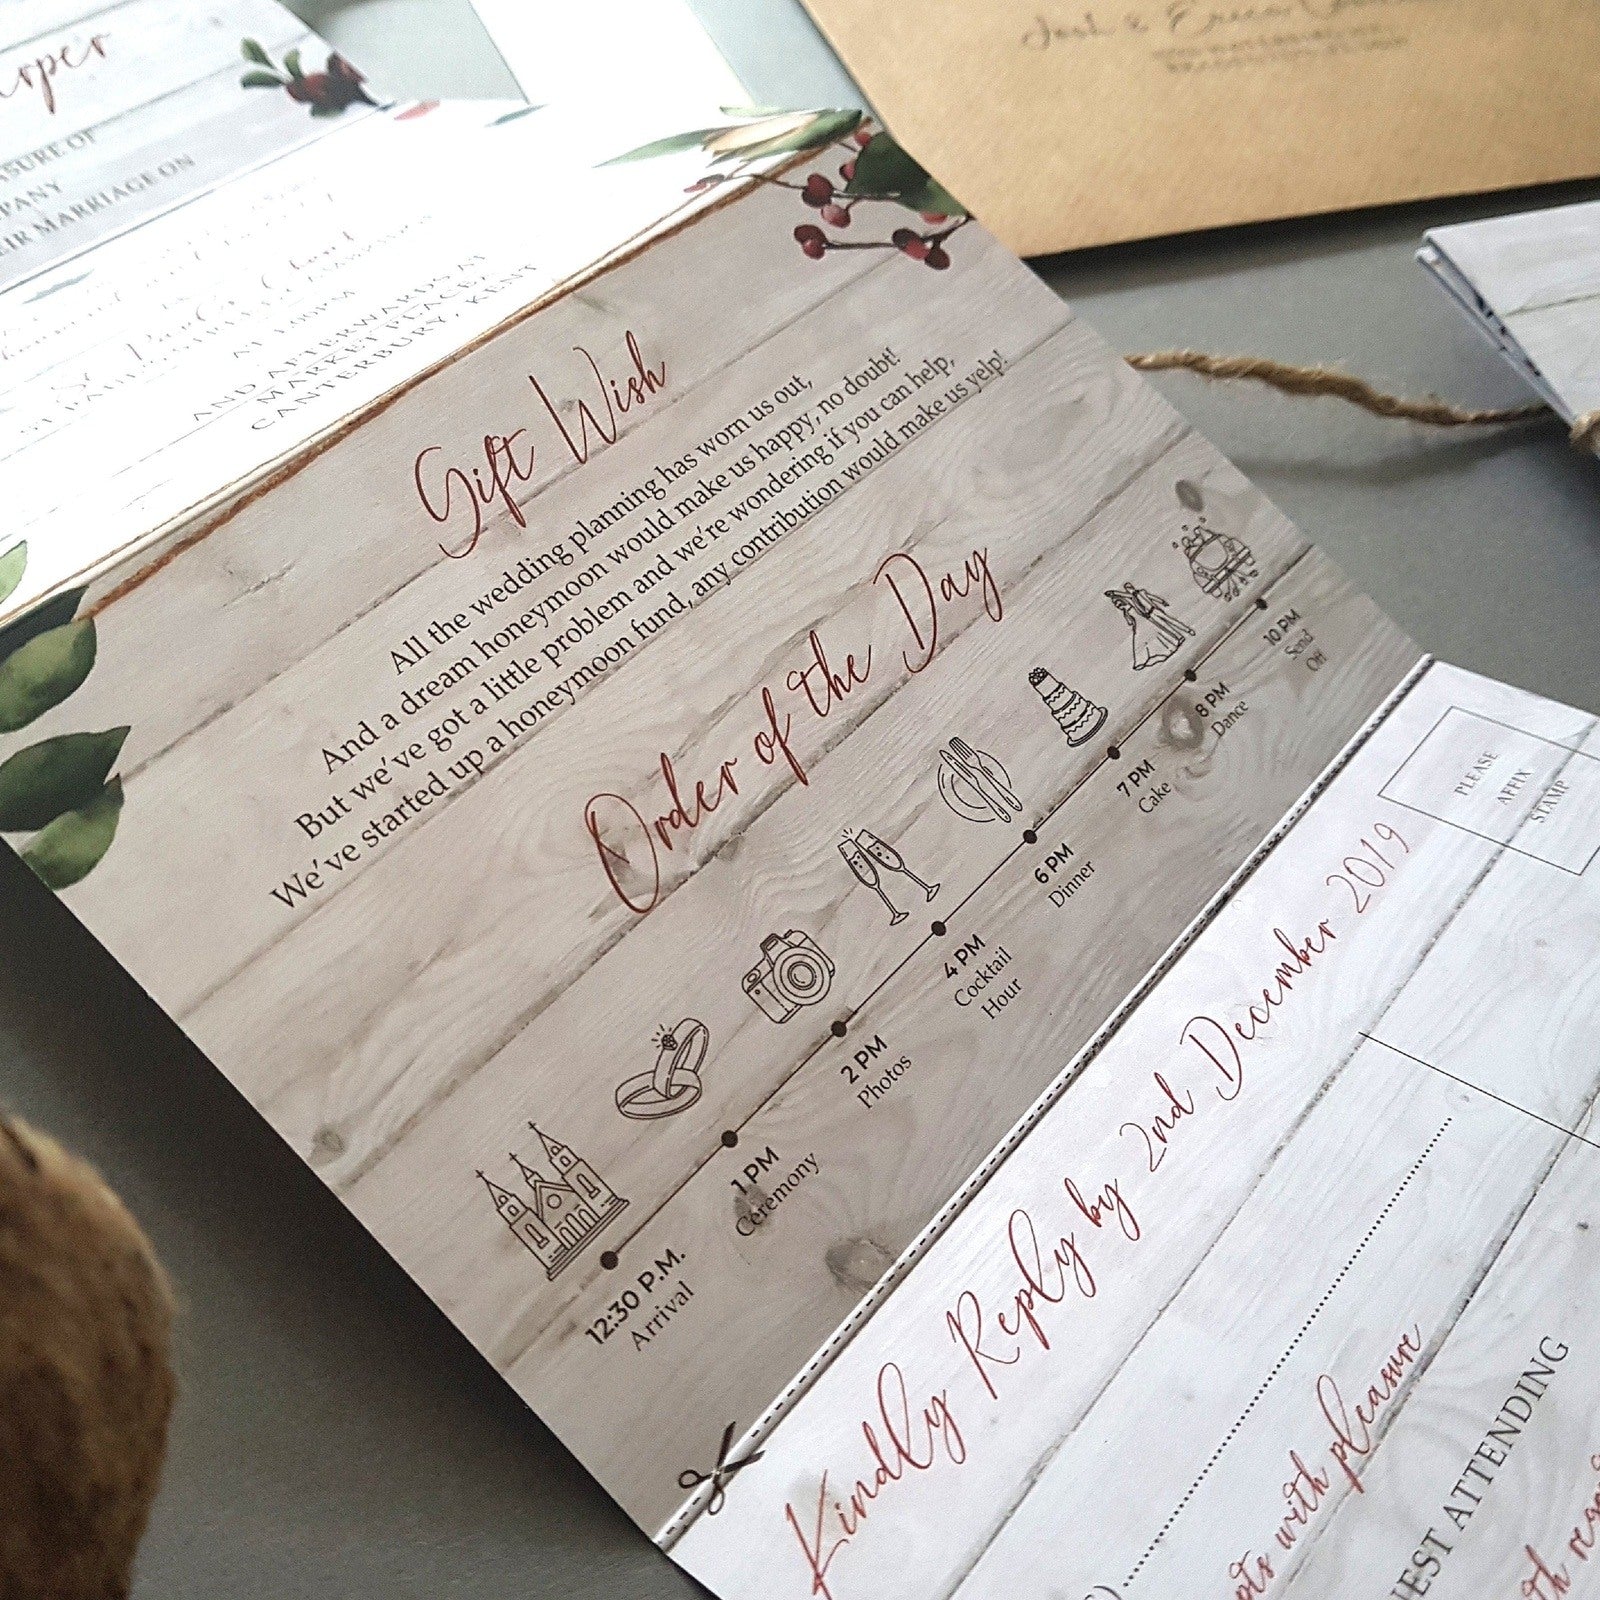 Josh & Erica
SURE OF
PANY
EIR MARRIAGE ON
AT 1:00PM
AND AFTERWARDS AT
MARKET PLACE,
CANTERBURY, KENT
Gift Wish
All the wedding planning has worn us out,
And a dream honeymoon would make us happy, no doubt!
But we've got a little problem and we're wondering if you can help,
We've started up a honeymoon fund, any contribution would make us yelp!
Order of the Day
12:30 P.M.
Arrival
1 PM
Ceremony
2 PM
Photos
4 PM
Cocktail
Hour
6 PM
Dinner
7 PM
Cake
8 PM
Dance
10 PM
Send
Off
PLEASE
AFFIX
STAMP
Kindly Reply by 2nd December 2019
pts with pleasure
EST ATTENDING